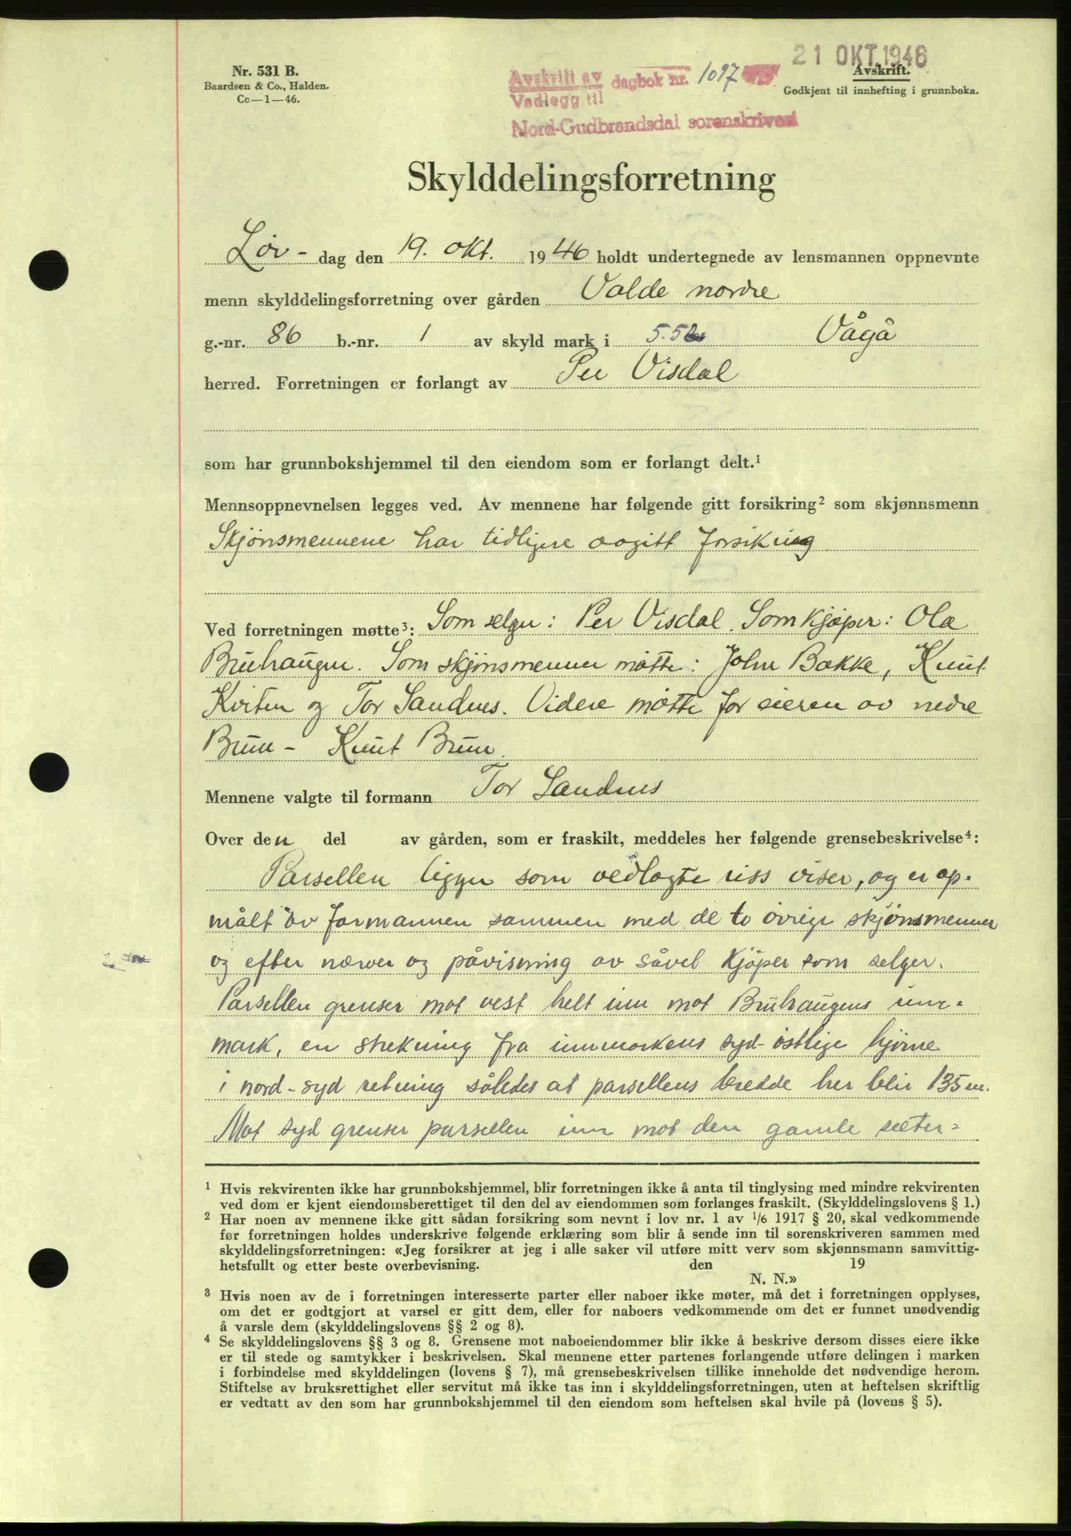 21 OKT. 1946
Nr. 531 B.
Baardsen & Co., Halden.
Cc—1—46.
Avskrift av dagbok nr. 1097
Vedlegg til
Nord-Gudbrandsdal sorenskriveri
Avskrift.
Godkjent til innhefting i grunnboka.
Skylddelingsforretning
Lør- dag den 19. okt. 1946 holdt undertegnede av lensmannen oppnevnte
menn skylddelingsforretning over gården Valde nordre
g.-nr. 86 b.-nr. 1 av skyld mark i 5.52 Vågå
herred. Forretningen er forlangt av Per Visdal
som har grunnbokshjemmel til den eiendom som er forlangt delt.¹
Mennsoppnevnelsen legges ved. Av mennene har følgende gitt forsikring² som skjønnsmenn
Skjönsmennene har tidligere avgitt forsikring
Ved forretningen møtte³: Som selger: Per Visdal. Som kjøper: Ola
Bruhaugen. Som skjönsmenner møtte: John Bakke, Knut
Kviten og Tor Sandnes. Videre møtte for eieren av nedre
Brun - Knut Brun.
Mennene valgte til formann Tor Sandnes
Over den del av gården, som er fraskilt, meddeles her følgende grensebeskrivelse⁴:
Parsellen ligger som vedlagte riss viser, og er op-
målt av formannen sammen med de to øvrige skjönsmenner
og efter nærver og påvisning av såvel kjöper som selger.
Parsellen grenser mot vest helt inn mot Bruhaugens inn-
mark, en strekning fra innmarkens syd-östlige hjörne
i nord-syd retning således at parsellens bredde her blir 135 m.
Mot syd grenser parsellen inn mot den gamle seter-
¹ Hvis rekvirenten ikke har grunnbokshjemmel, blir forretningen ikke å anta til tinglysing med mindre rekvirenten
ved dom er kjent eiendomsberettiget til den del av eiendommen som forlanges fraskilt. (Skylddelingslovens § 1.)
² Har noen av mennene ikke gitt sådan forsikring som nevnt i lov nr. 1 av ¹/₆ 1917 § 20, skal vedkommende
før forretningen holdes underskrive følgende erklæring som blir å sende inn til sorenskriveren sammen med
skylddelingsforretningen: «Jeg forsikrer at jeg i alle saker vil utføre mitt verv som skjønnsmann samvittig-
hetsfullt og etter beste overbevisning. den 19
N. N.»
³ Hvis noen av de i forretningen interesserte parter eller naboer ikke møter, må det i forretningen opplyses,
om det er godtgjort at varsel er gitt dem, eller for naboers vedkommende om det er funnet unødvendig
å varsle dem (skylddelingslovens §§ 2 og 8).
⁴ Se skylddelingslovens §§ 3 og 8. Grensene mot naboeiendommer blir ikke å beskrive dersom disses eiere ikke
er til stede og samtykker i beskrivelsen. Skal mennene etter partenes forlangende utføre delingen i marken
i forbindelse med skylddelingen (lovens § 7), må grensebeskrivelsen tillike inneholde det nødvendige herom.
Stiftelse av bruksrettighet eller servitut må ikke tas inn i skylddelingsforretningen, uten at heftelsen skriftlig
er vedtatt av den som har grunnbokshjemmel til den eiendom som heftelsen skal hvile på (lovens § 5).